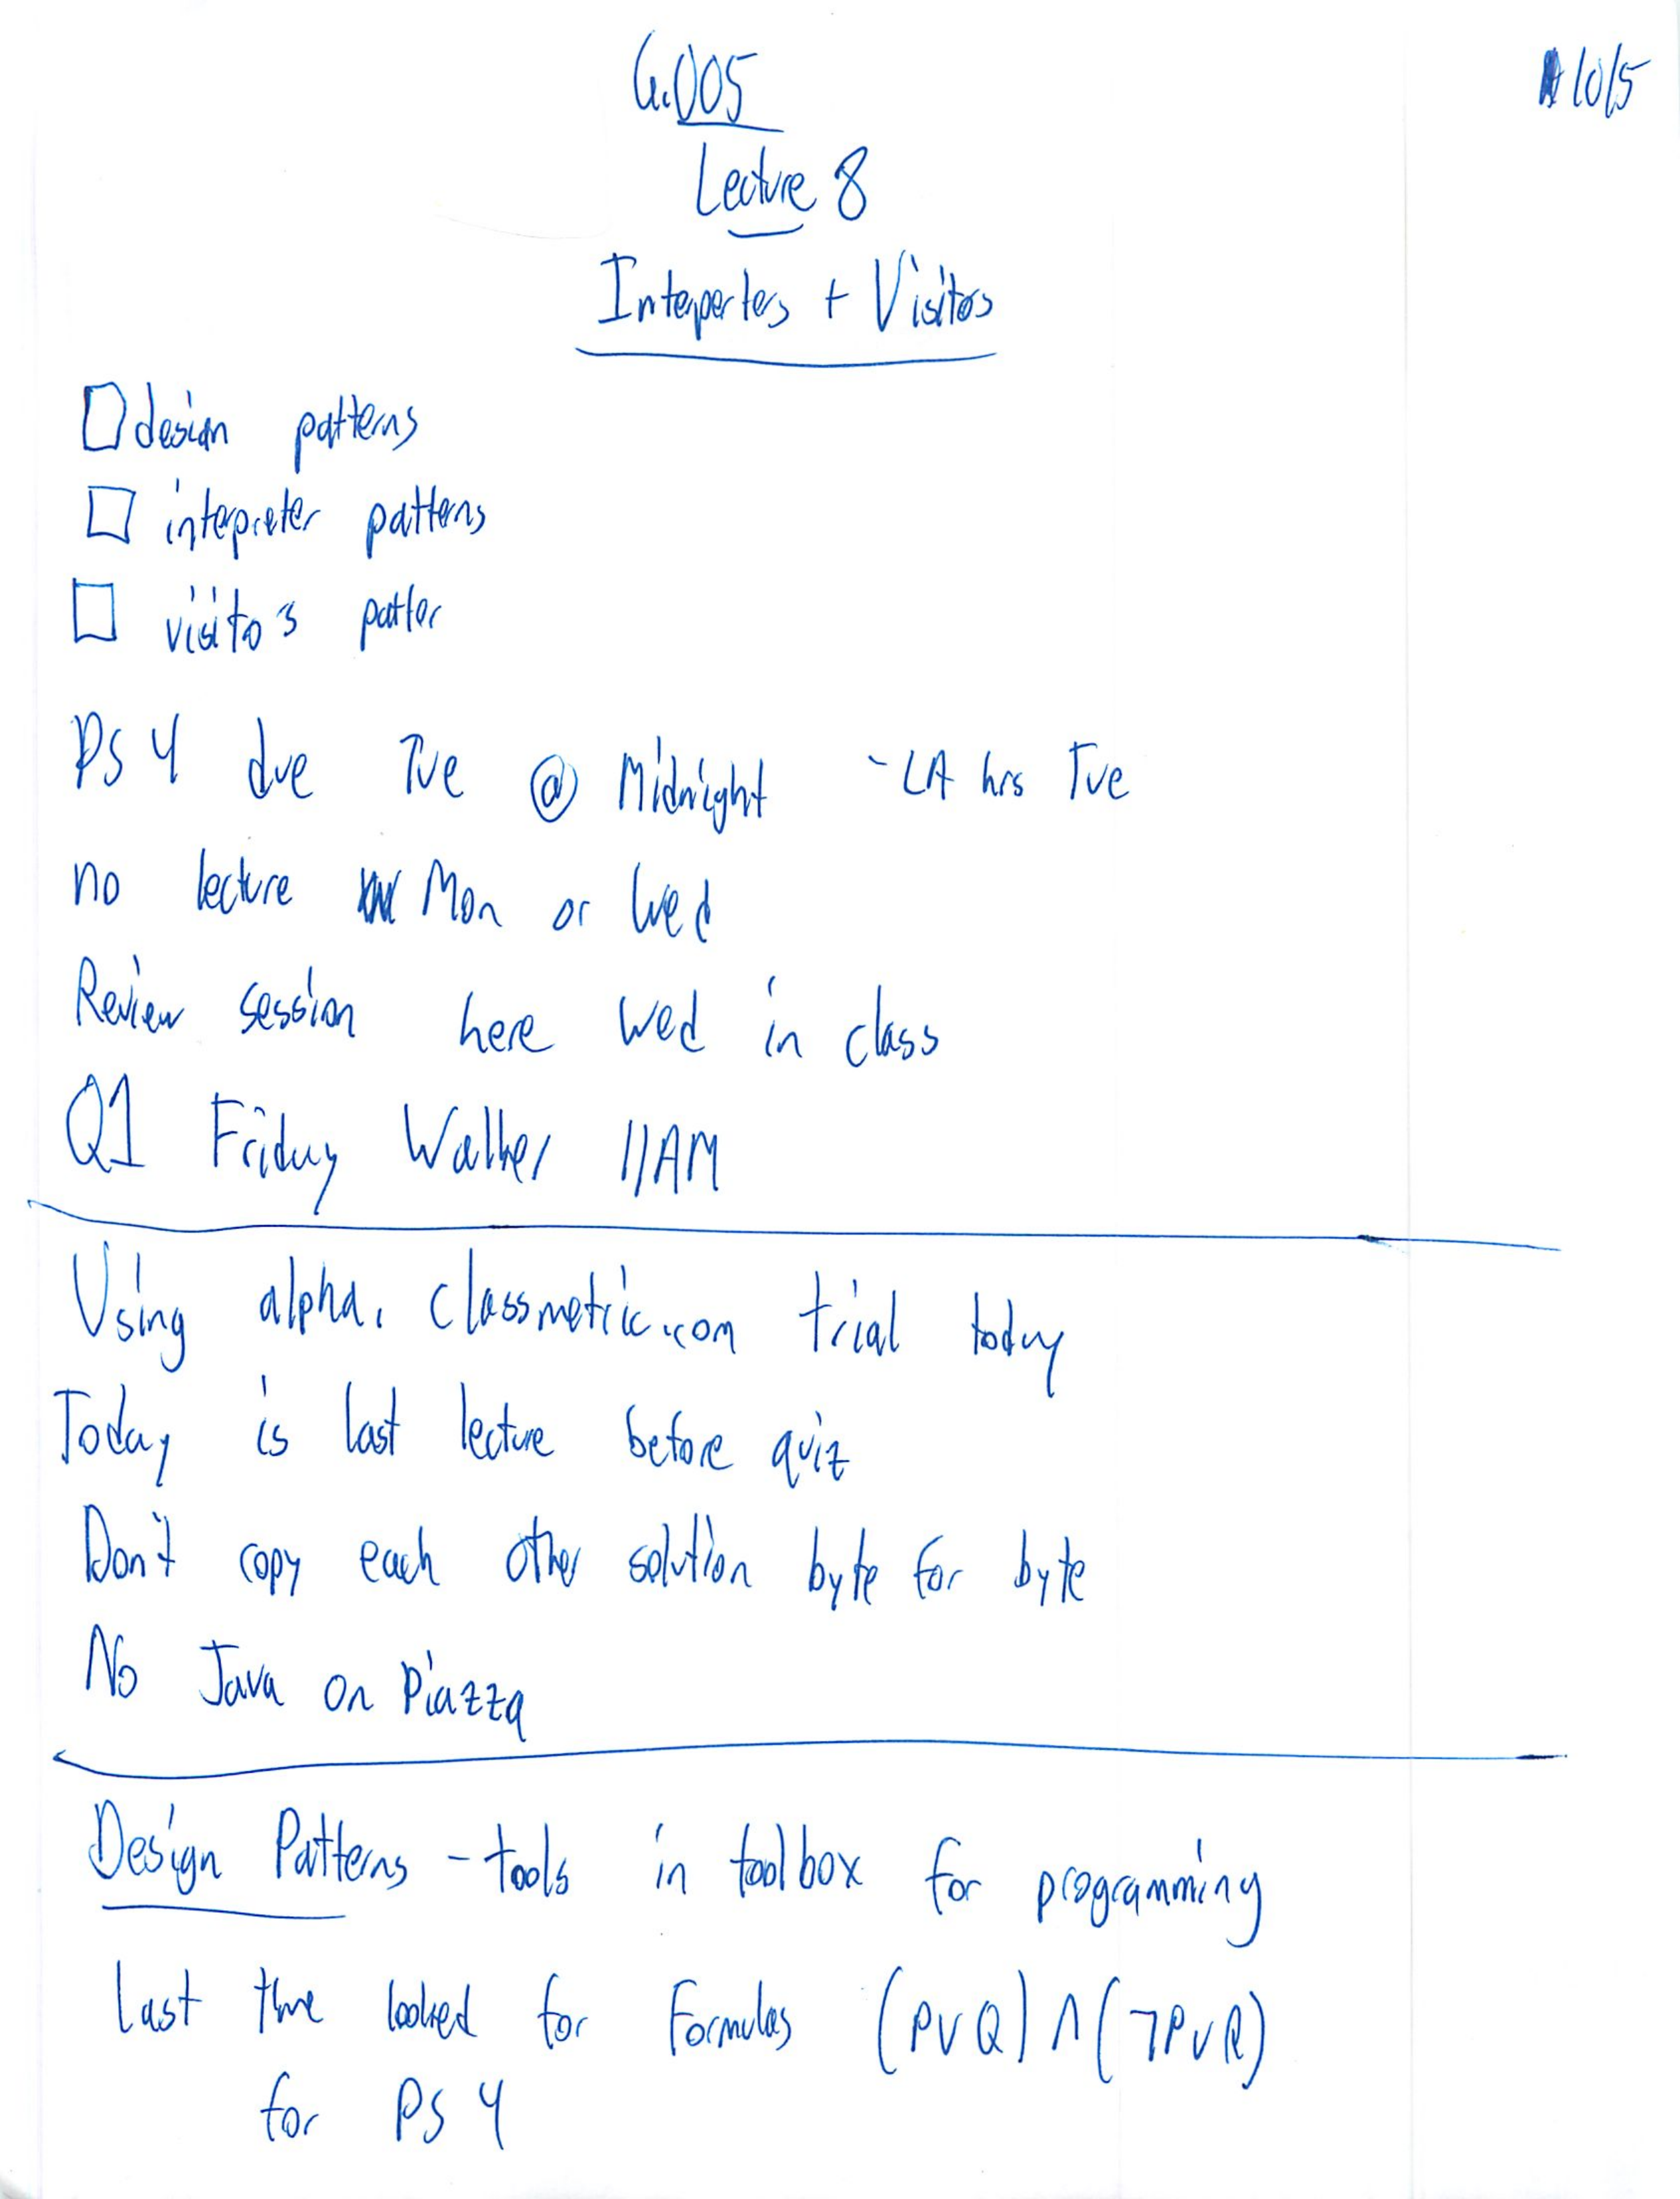 6.005
10/5
Lecture 8
Interperters + Visitos
design patterns
interpreter patterns
visitors patter
PS 4 due Tue @ Midnight - LA hrs Tue
no lecture Mon or Wed
Review session here Wed in class
Q1 Friday Walker 11AM
Using alpha.classmetric.com trial today
Today is last lecture before quiz
Don't copy each other solution byte for byte
No Java on Piazza
Design Patterns - tools in toolbox for programming
Last time looked for Formulas (P∨Q)∧(¬P∨R)
for PS 4